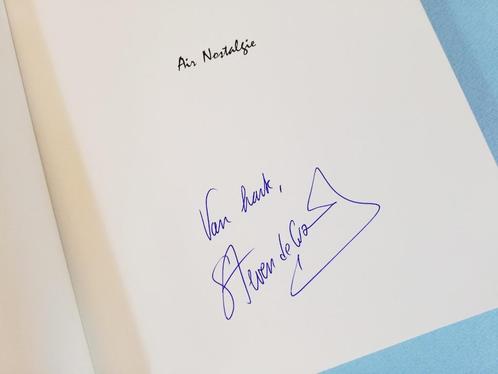 Air Nostalgie
Van hart,
Steven de